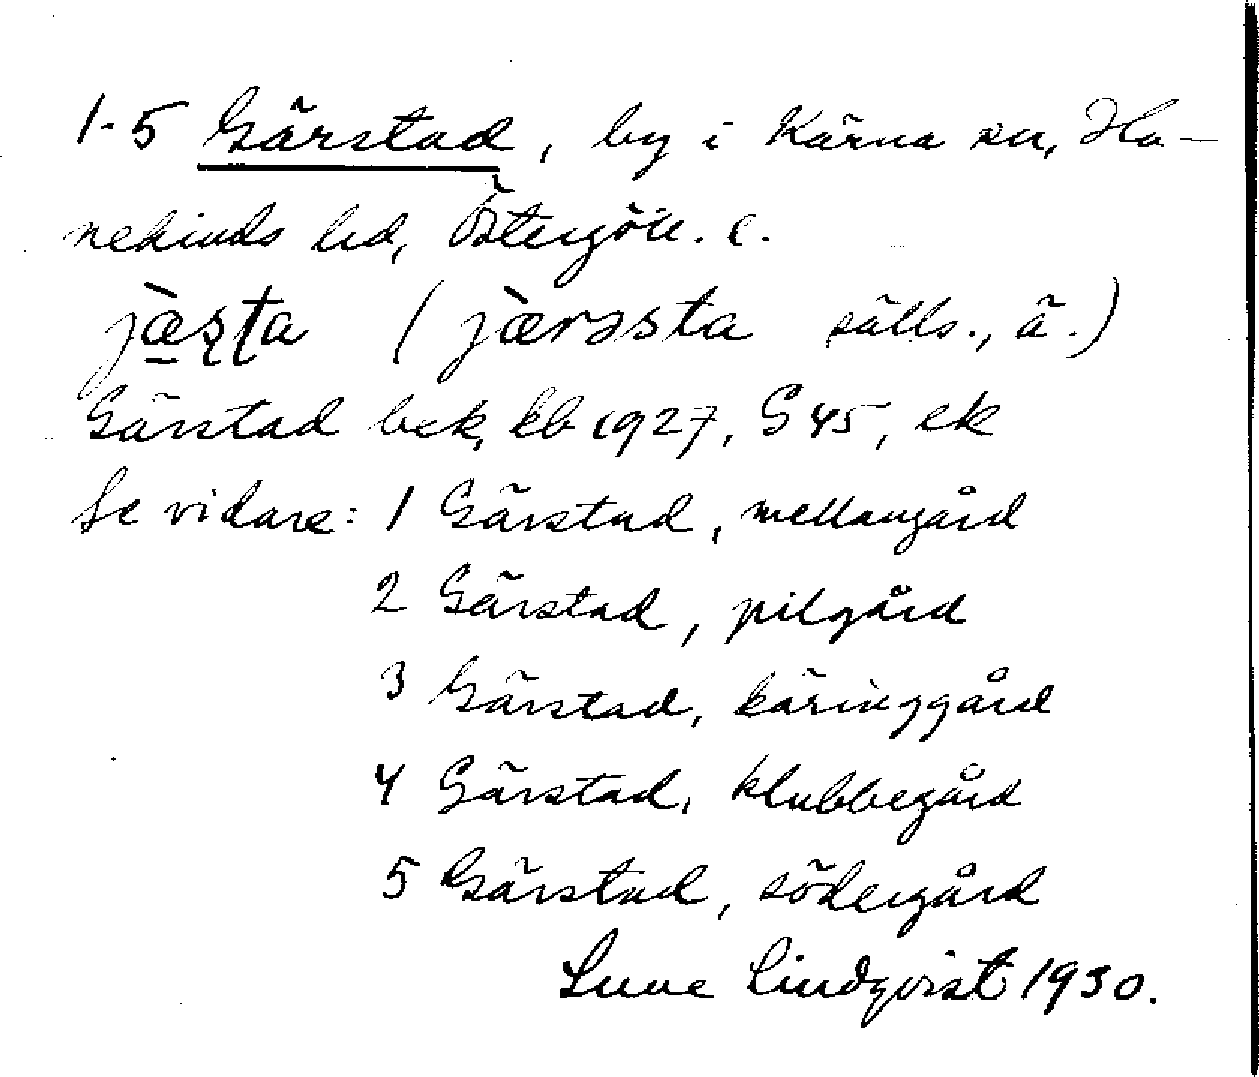 1-5 Gärstad, by i Kärna sn, Ha-
nekinds hd, Östergötl. l.
jæ̀ʂʈa (jæ̀rəsta sälls., ä.)
Gärstad bek, kb 1927, G 45, ek
Se vidare: 1 Gärstad, mellangård
2 Gärstad, pilgård
3 Gärstad, käringgård
4 Gärstad, klubbegård
5 Gärstad, södergård
Sune Lindqvist 1930.